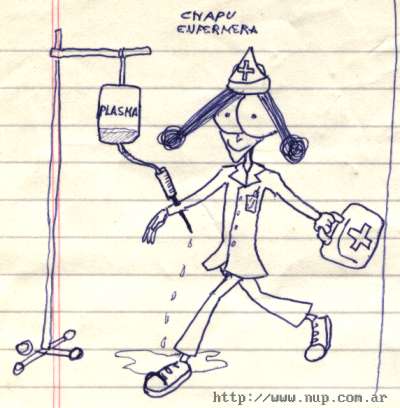 CHAPU
ENFERMERA
PLASMA
http://www.nup.com.ar